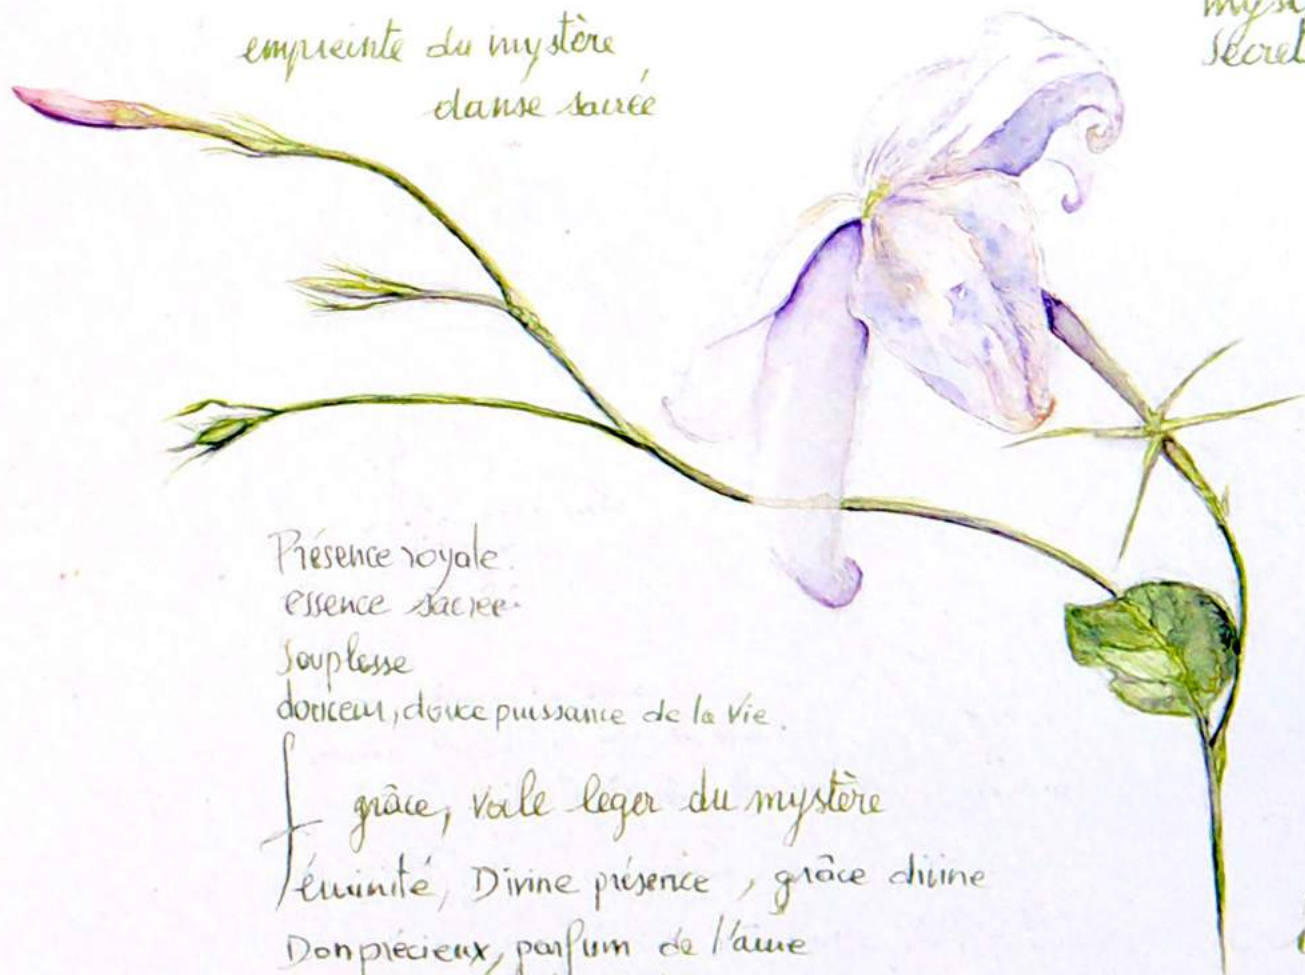 empreinte du mystère
danse sacrée
Secret
Présence royale.
essence sacrée.
souplesse
douceur, douce puissance de la Vie.
grâce, voile léger du mystère
féminité, Divine présence, grâce divine
Don précieux, parfum de l'âme